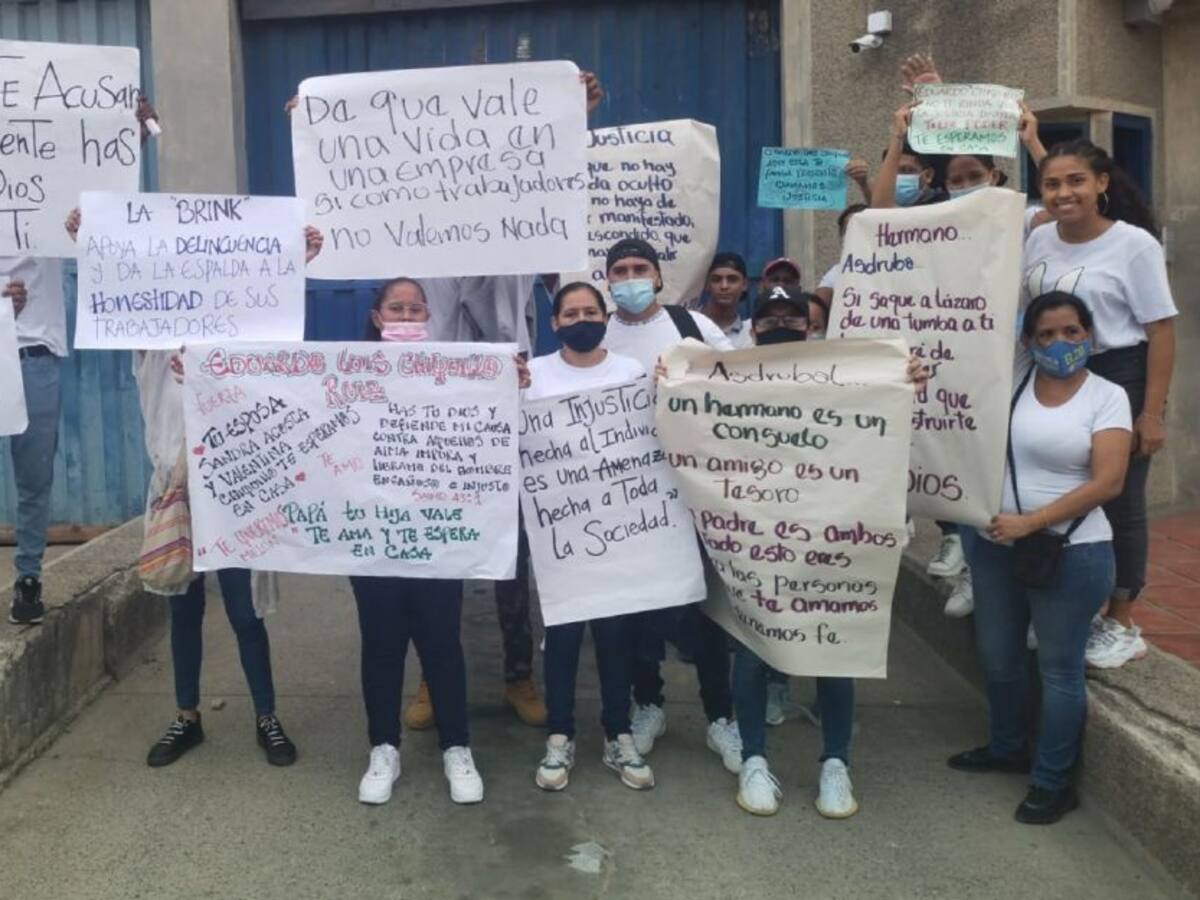 E Acusan
ente has
Dios
Ti.
LA "BRINK"
APOYA LA DELINCUENCIA
Y DA LA ESPALDA A LA
HONESTIDAD DE SUS
TRABAJADORES
Da qua vale
una Vida en
una empresa
si como trabajadores
no Valemos Nada
Justicia
que no hay
da oculto
no haya de
manifestado,
scondido, que
TE ESPERAMOS
EN CASA
Hermano...
Asdruba
Si saque a lázaro
de una tumba a ti
de
que
struirte
Dios.
Ruiz
FUERZA
TU ESPOSA
SANDRA ACOSTA
Y VALENTINA
TE ESPERAMOS
EN CASA
TE AMO
HAS TU DIOS Y
DEFIENDE MI CAUSA
CONTRA
ALMA IMPURA Y
LIBRAME DEL HOMBRE
ENGAÑOSO E INJUSTO
SALMO 43:1
PAPÁ TU HIJA VALE
TE AMA Y TE ESPERA
EN CASA
"TE QUEREMOS
Una Injusticia
hecha al Individ
es una Amenaz
hecha a Toda
la Sociedad."
Asdrubal...
un hermano es un
consuelo
un amigo es un
Tesoro
Padre es ambos
todo esto eres
las personas
que te amamos
fe.